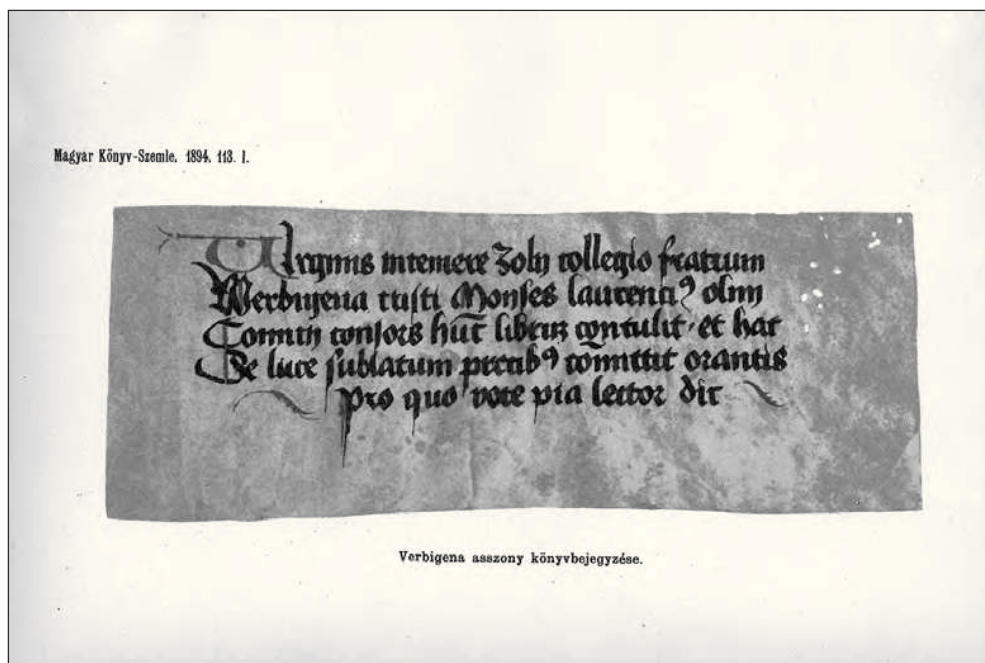 Magyar Könyv-Szemle. 1894. 113. l.
Virginis intemere Zoly collegio fratrum
Werbugena custi Monses laurenciꝰ olim
Comitis consors hūc librum contulit et hac
De luce sublatum precibꝰ cōmittit orantis
pro quo voce pia lector dic
Verbigena asszony könyvbejegyzése.